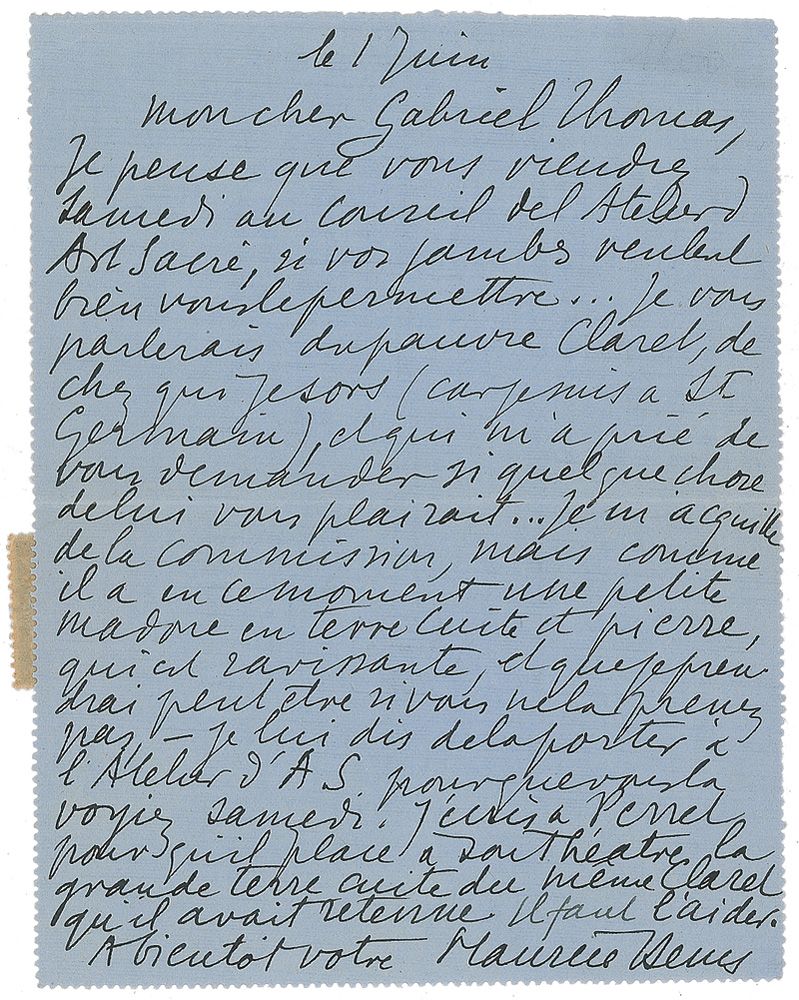 le 1 Juin
Mon cher Gabriel Thomas,
Je pense que vous viendrez
Samedi au Conseil del Atelier d
Art Sacré, si vos jambes veulent
bien vous le permettre... Je vous
parlerais du pauvre Claret, de
chez qui je sors (car je suis a St
Germain), et qui m'a prié de
vous demander si quelque chose
de lui vous plairait... Je m'acquitte
de la commission, mais comme
il a en ce moment une petite
madone en terre cuite et pierre,
qui est ravissante, et que je pren-
drai peut être si vous ne la prenez
pas, – je lui dis de la porter à
l'Atelier d'A S. pour que vous la
voyiez samedi. J'écris a Perret
pour qu'il place à son Théatre la
grande terre cuite du même Claret
qu'il avait retenue. Il faut l'aider.
A bientot votre Maurice Denis